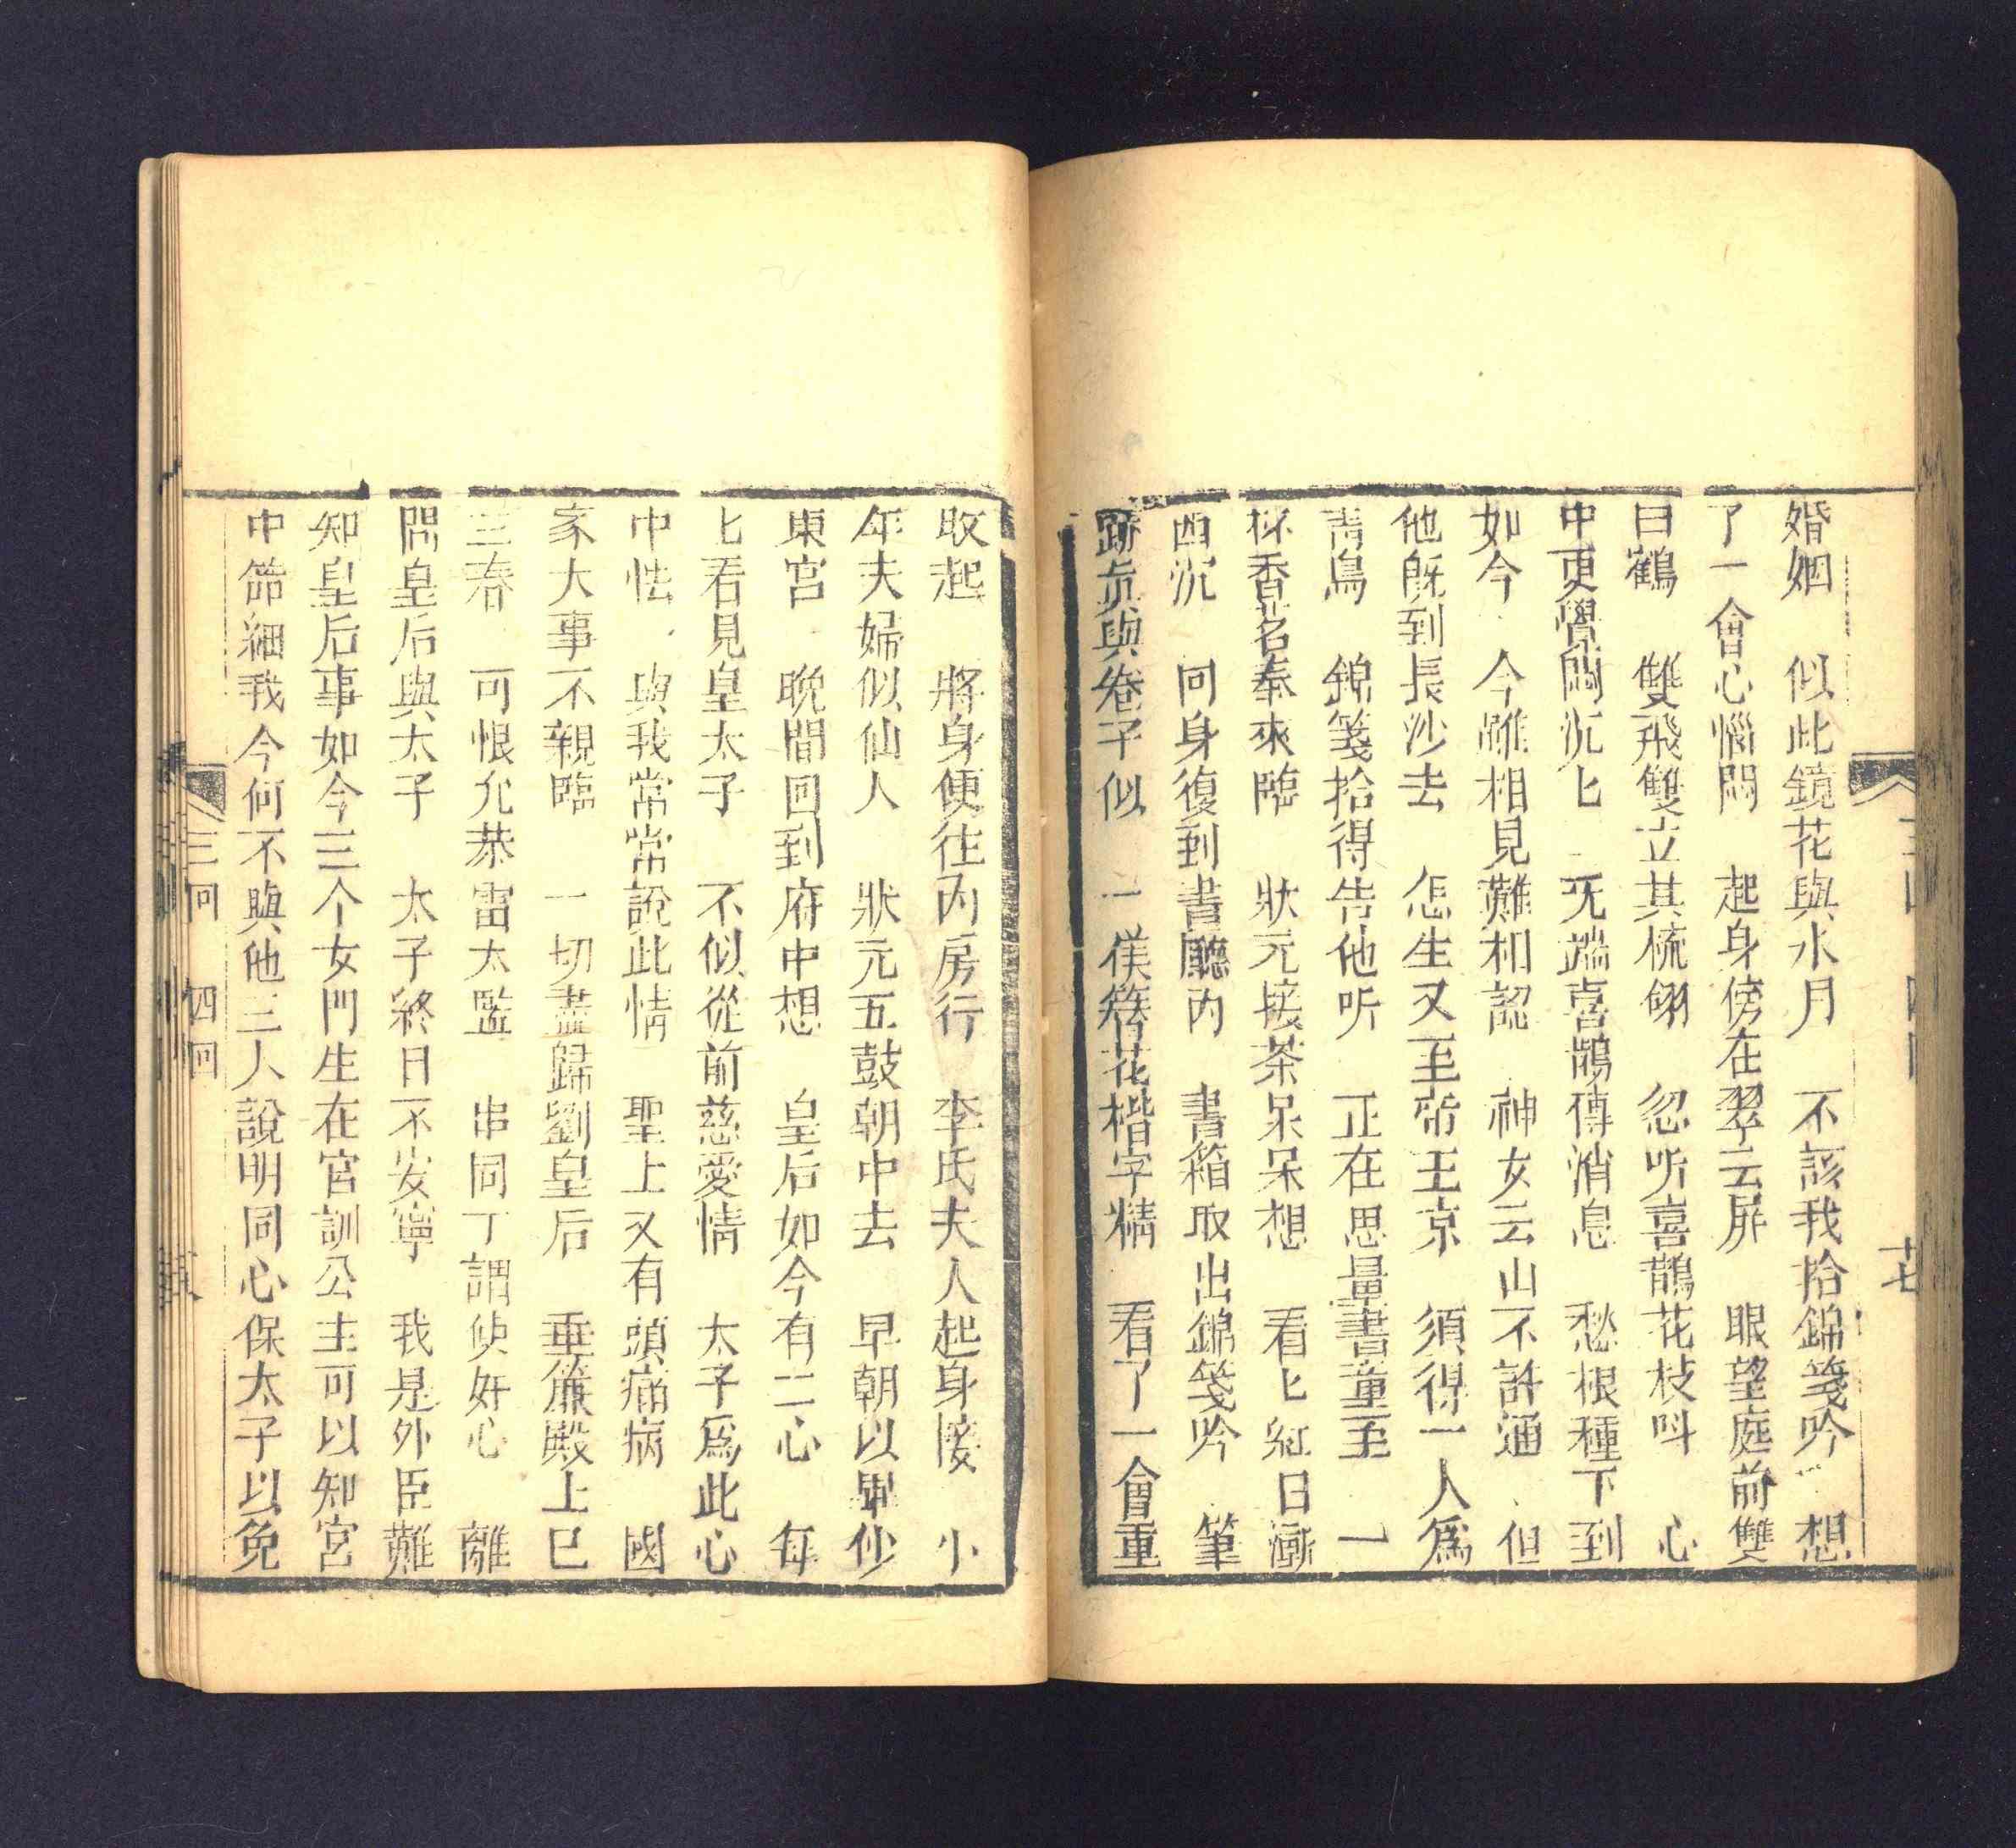 婚姻　似此鏡花與水月　不該我拾錦箋吟　想
了一會心惱悶　起身傍在翠云屏　眼望庭前雙
白鶴　雙飛雙立其梳翎　忽听喜鵲花枝呌　心
中更覺悶沉匕　无端喜鵲傳消息　愁根種下到
如今　今雖相見難相認　神女云山不許通　但
他旣到長沙去　怎生又至帝王京　須得一人爲
青鳥　錦箋拾得告他听　正在思量書童至　一
杯香茗奉來臨　狀元接茶呆呆想　看匕紅日漸
西沉　回身復到書廳內　書箱取出錦箋吟　筆
跡眞與卷子似　一樣簪花楷字精　看了一會重
十七
收起　將身便往內房行　李氏夫人起身接　小
年夫婦似仙人　狀元五鼓朝中去　早朝以畢仯
東宮　晚間回到府中想　皇后如今有二心　每
匕看見皇太子　不似從前慈愛情　太子爲此心
中怯　與我常常說此情　聖上又有頭痛病　國
家大事不親臨　一切盡歸劉皇后　垂簾殿上巳
三春　可恨允恭雷太監　串同丁謂使奸心　離
間皇后與太子　太子終日不安寧　我是外臣難
知皇后事如今三个女門生在宮訓公主可以知宮
中節細我今何不與他三人說明同心保太子以免
三回　四回